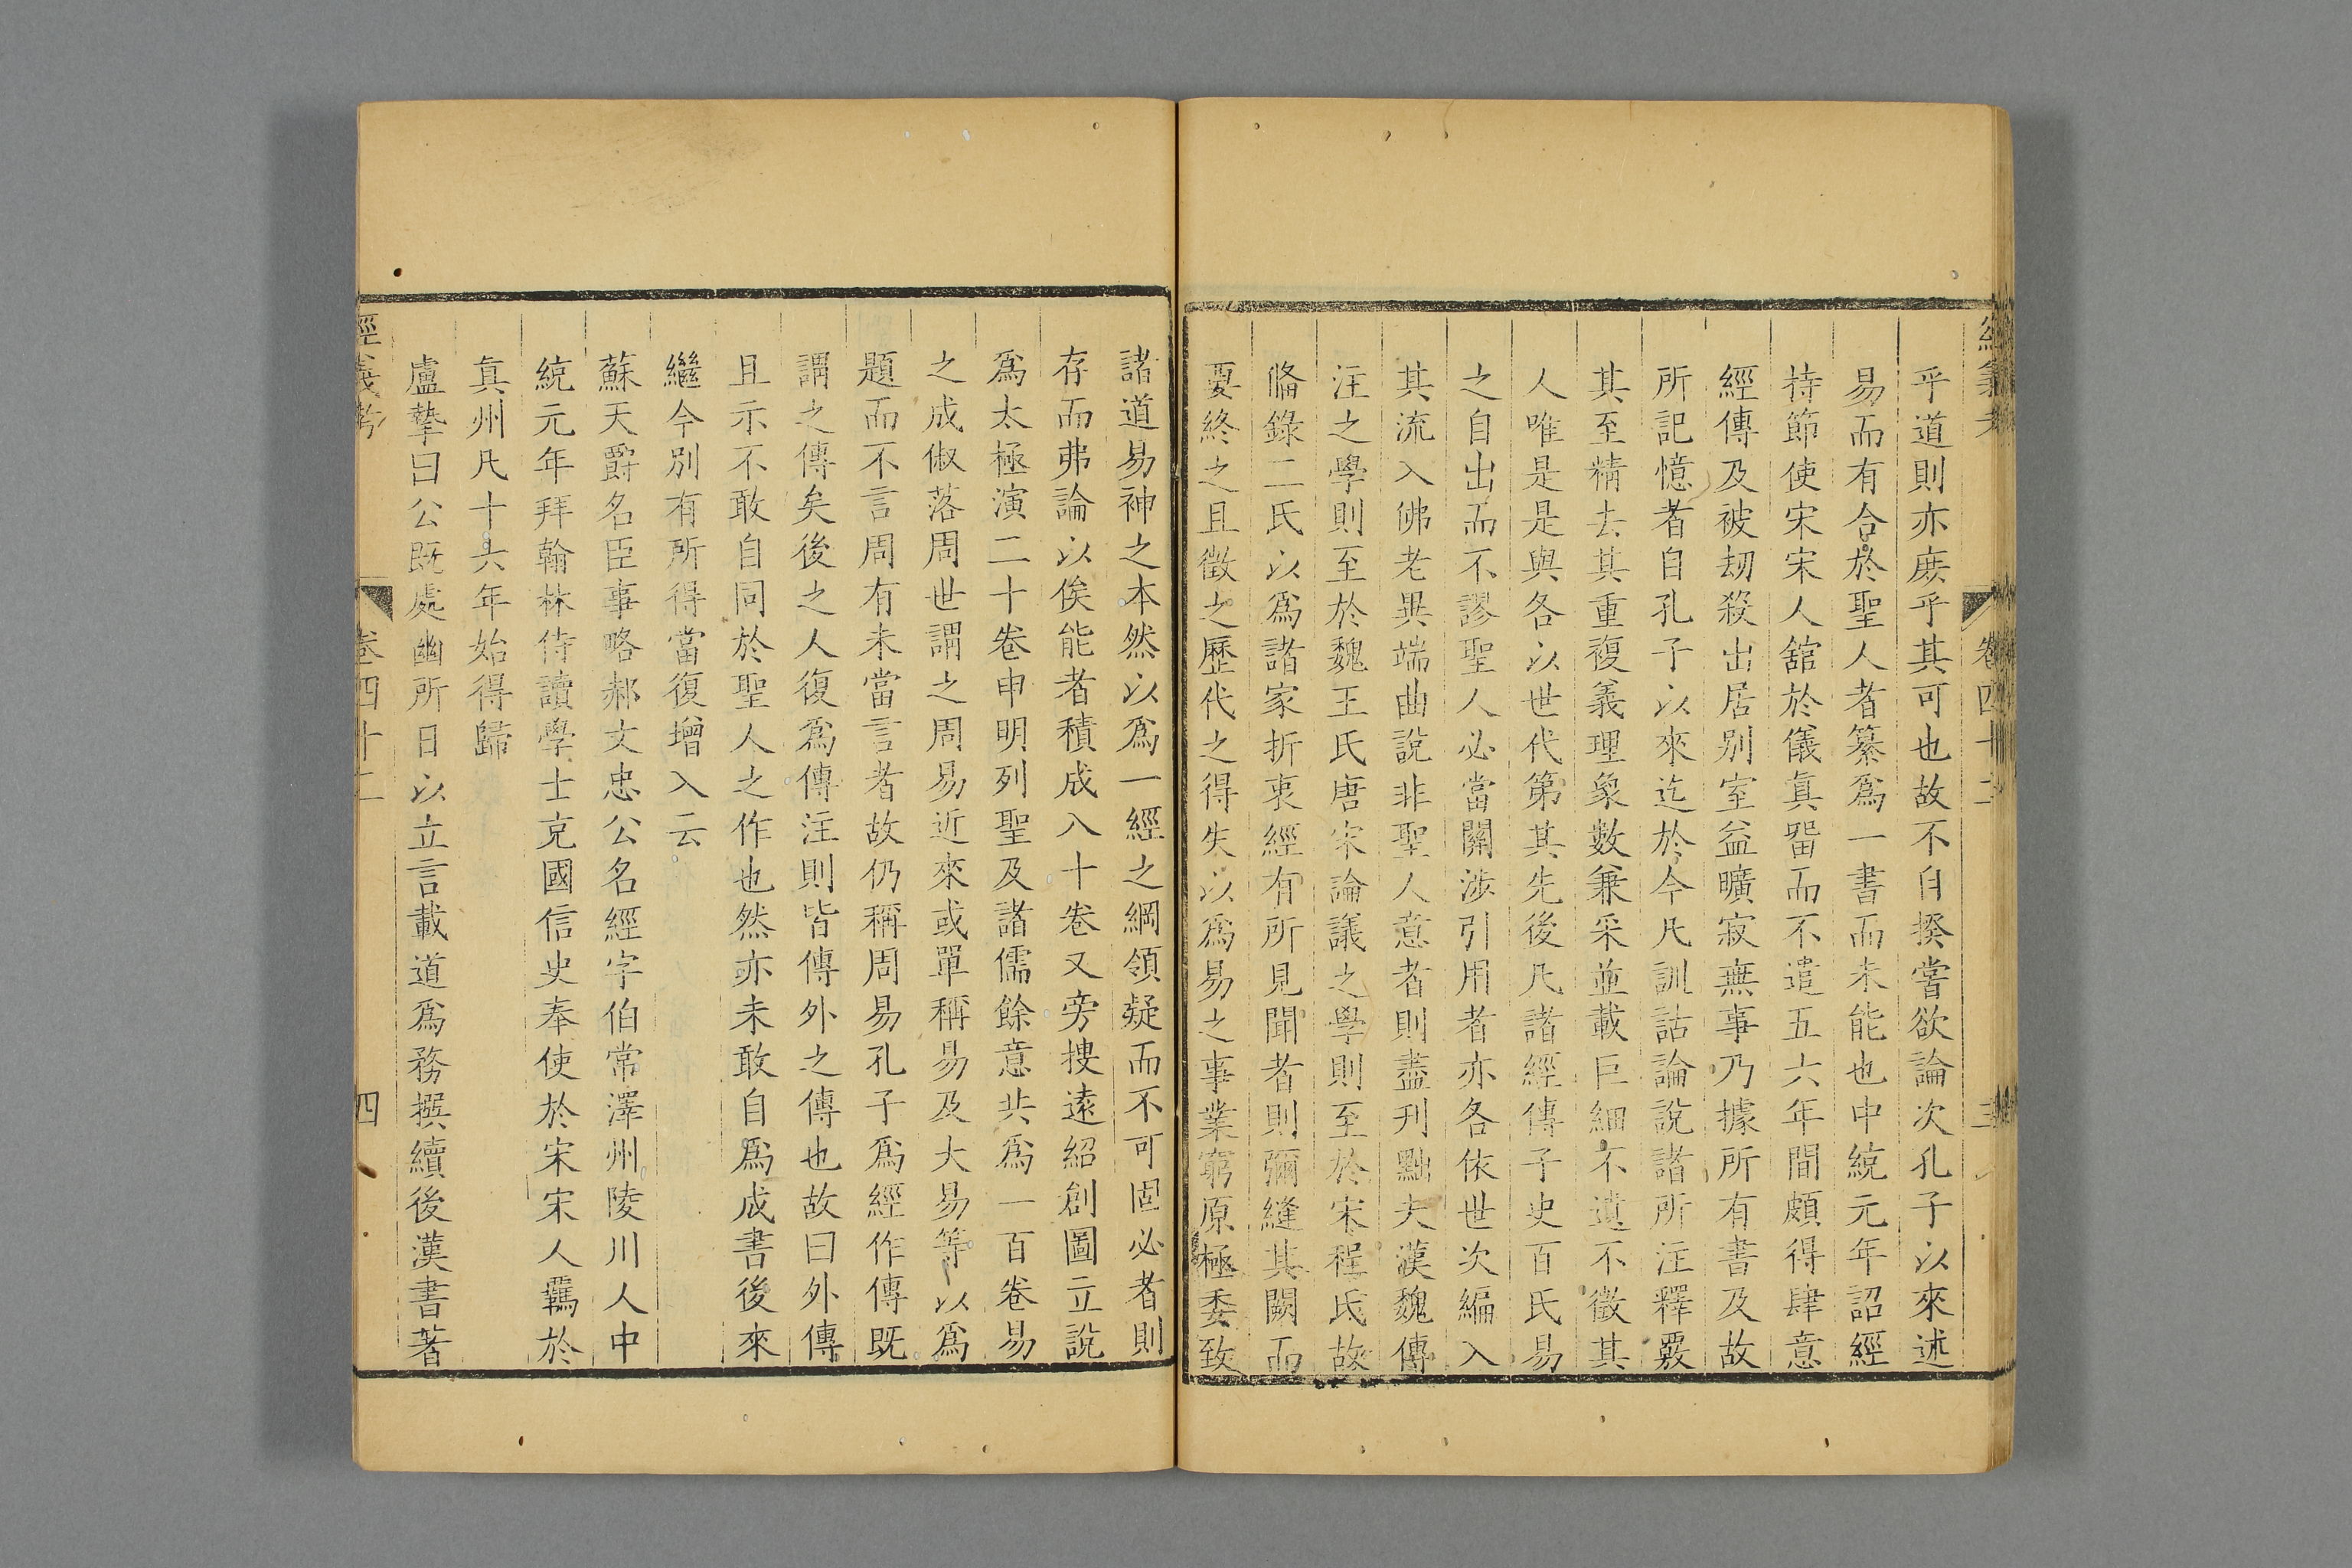 經義考 卷四十二 三
乎道則亦庶乎其可也故不自揆嘗欲論次孔子以來述
易而有合於聖人者纂爲一書而未能也中統元年詔經
持節使宋宋人舘於儀真留而不遣五六年間頗得肆意
經傳及被刼殺出居别室益曠寂無事乃據所有書及故
所記憶者自孔子以來迄於今凡訓詁論說諸所注釋覈
其至精去其重複義理象數兼采並載巨細不遺不徵其
人唯是是與各以世代第其先後凡諸經傳子史百氏易
之自出而不謬聖人必當關涉引用者亦各依世次編入
其流入佛老異端曲說非聖人意者則盡刊黜夫漢魏傳
注之學則至於魏王氏唐宋論議之學則至於宋程氏故
偹錄二氏以爲諸家折衷經有所見聞者則彌縫其闕而
要終之且徵之歷代之得失以爲易之事業窮原極委致
諸道易神之本然以爲一經之綱領疑而不可固必者則
存而弗論以俟能者積成八十卷又旁搜遠紹創圖立說
爲太極演二十卷申明列聖及諸儒餘意共爲一百卷易
之成俶落周世謂之周易近來或單稱易及大易等以爲
題而不言周有未當言者故仍稱周易孔子爲經作傳既
謂之傳矣後之人復爲傳注則皆傳外之傳也故曰外傳
且示不敢自同於聖人之作也然亦未敢自爲成書後來
繼今別有所得當復增入云
蘇天爵名臣事略郝文忠公名經字伯常澤州陵川人中
統元年拜翰林侍讀學士充國信史奉使於宋宋人羈於
真州凡十六年始得歸
盧摯曰公既處幽所日以立言載道爲務撰續後漢書著
經義考 卷四十二 四